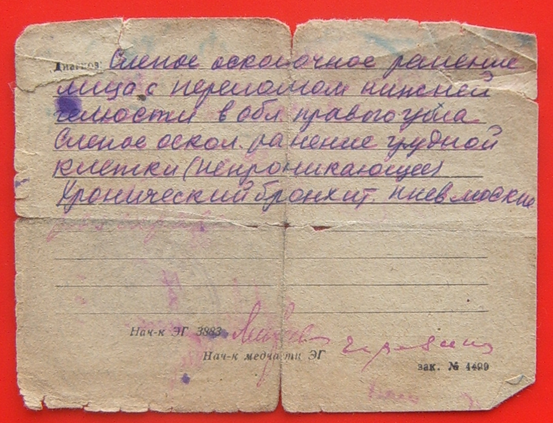 Диагноз Слепое осколочное ранение
лица с переломом нижней
челюсти в обл правого угла
Слепое оскол. ранение грудной
клетки (непроникающее)
Хронический бронхит. пневмоскле
Нач-к ЭГ 3883
Нач-к медчасти ЭГ
зак. № 4499